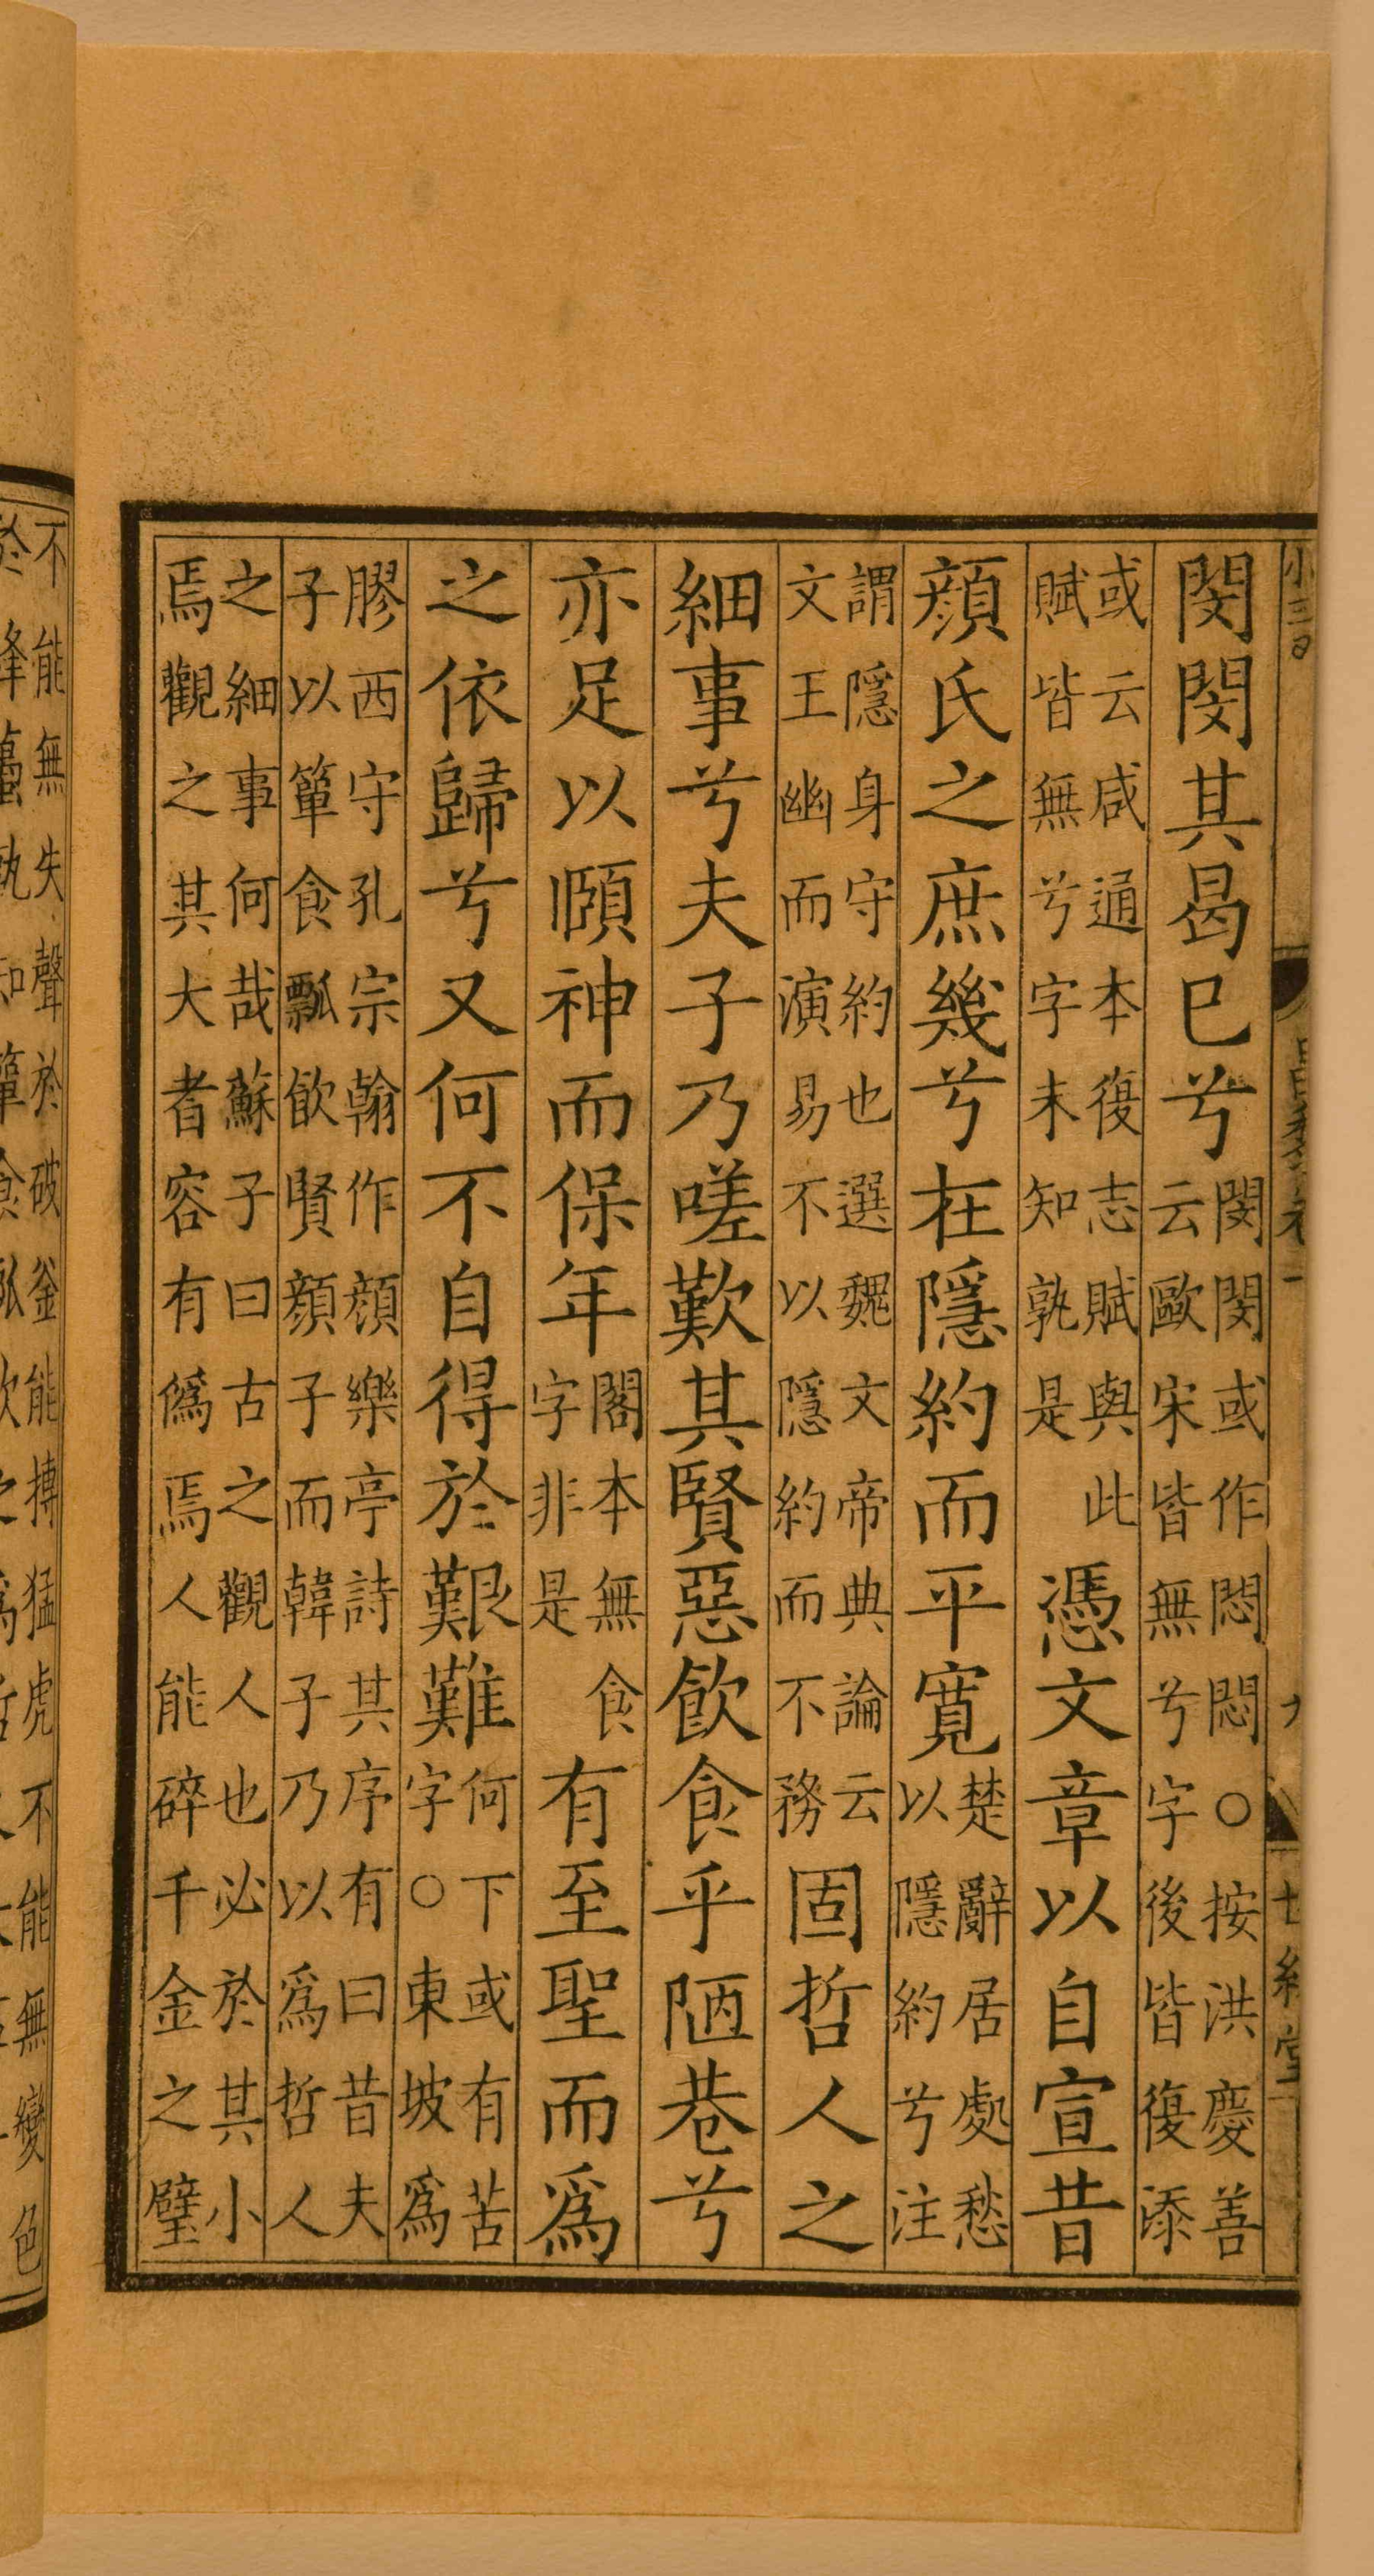 閔閔其曷已兮閔閔或作悶悶○按洪慶善云歐宋皆無兮字後皆復添
或云咸通本復志賦與此賦皆無兮字未知孰是憑文章以自宣昔
顔氏之庶幾兮在隱約而平寬楚辭居處愁以隱約兮注
謂隱身守約也選魏文帝典論云文王幽而演易不以隱約而不務固哲人之
細事兮夫子乃嗟歎其賢惡飲食乎陋巷兮
亦足以頤神而保年閣本無食字非是有至聖而爲
之依歸兮又何不自得於艱難何下或有苦字○東坡爲
膠西守孔宗翰作顔樂亭詩其序有曰昔夫子以簞食瓢飲賢顔子而韓子乃以爲哲人
之細事何哉蘇子曰古之觀人也必於其小焉觀之其大者容有僞焉人能碎千金之璧
不能無失聲於破釜能搏猛虎不能無變色